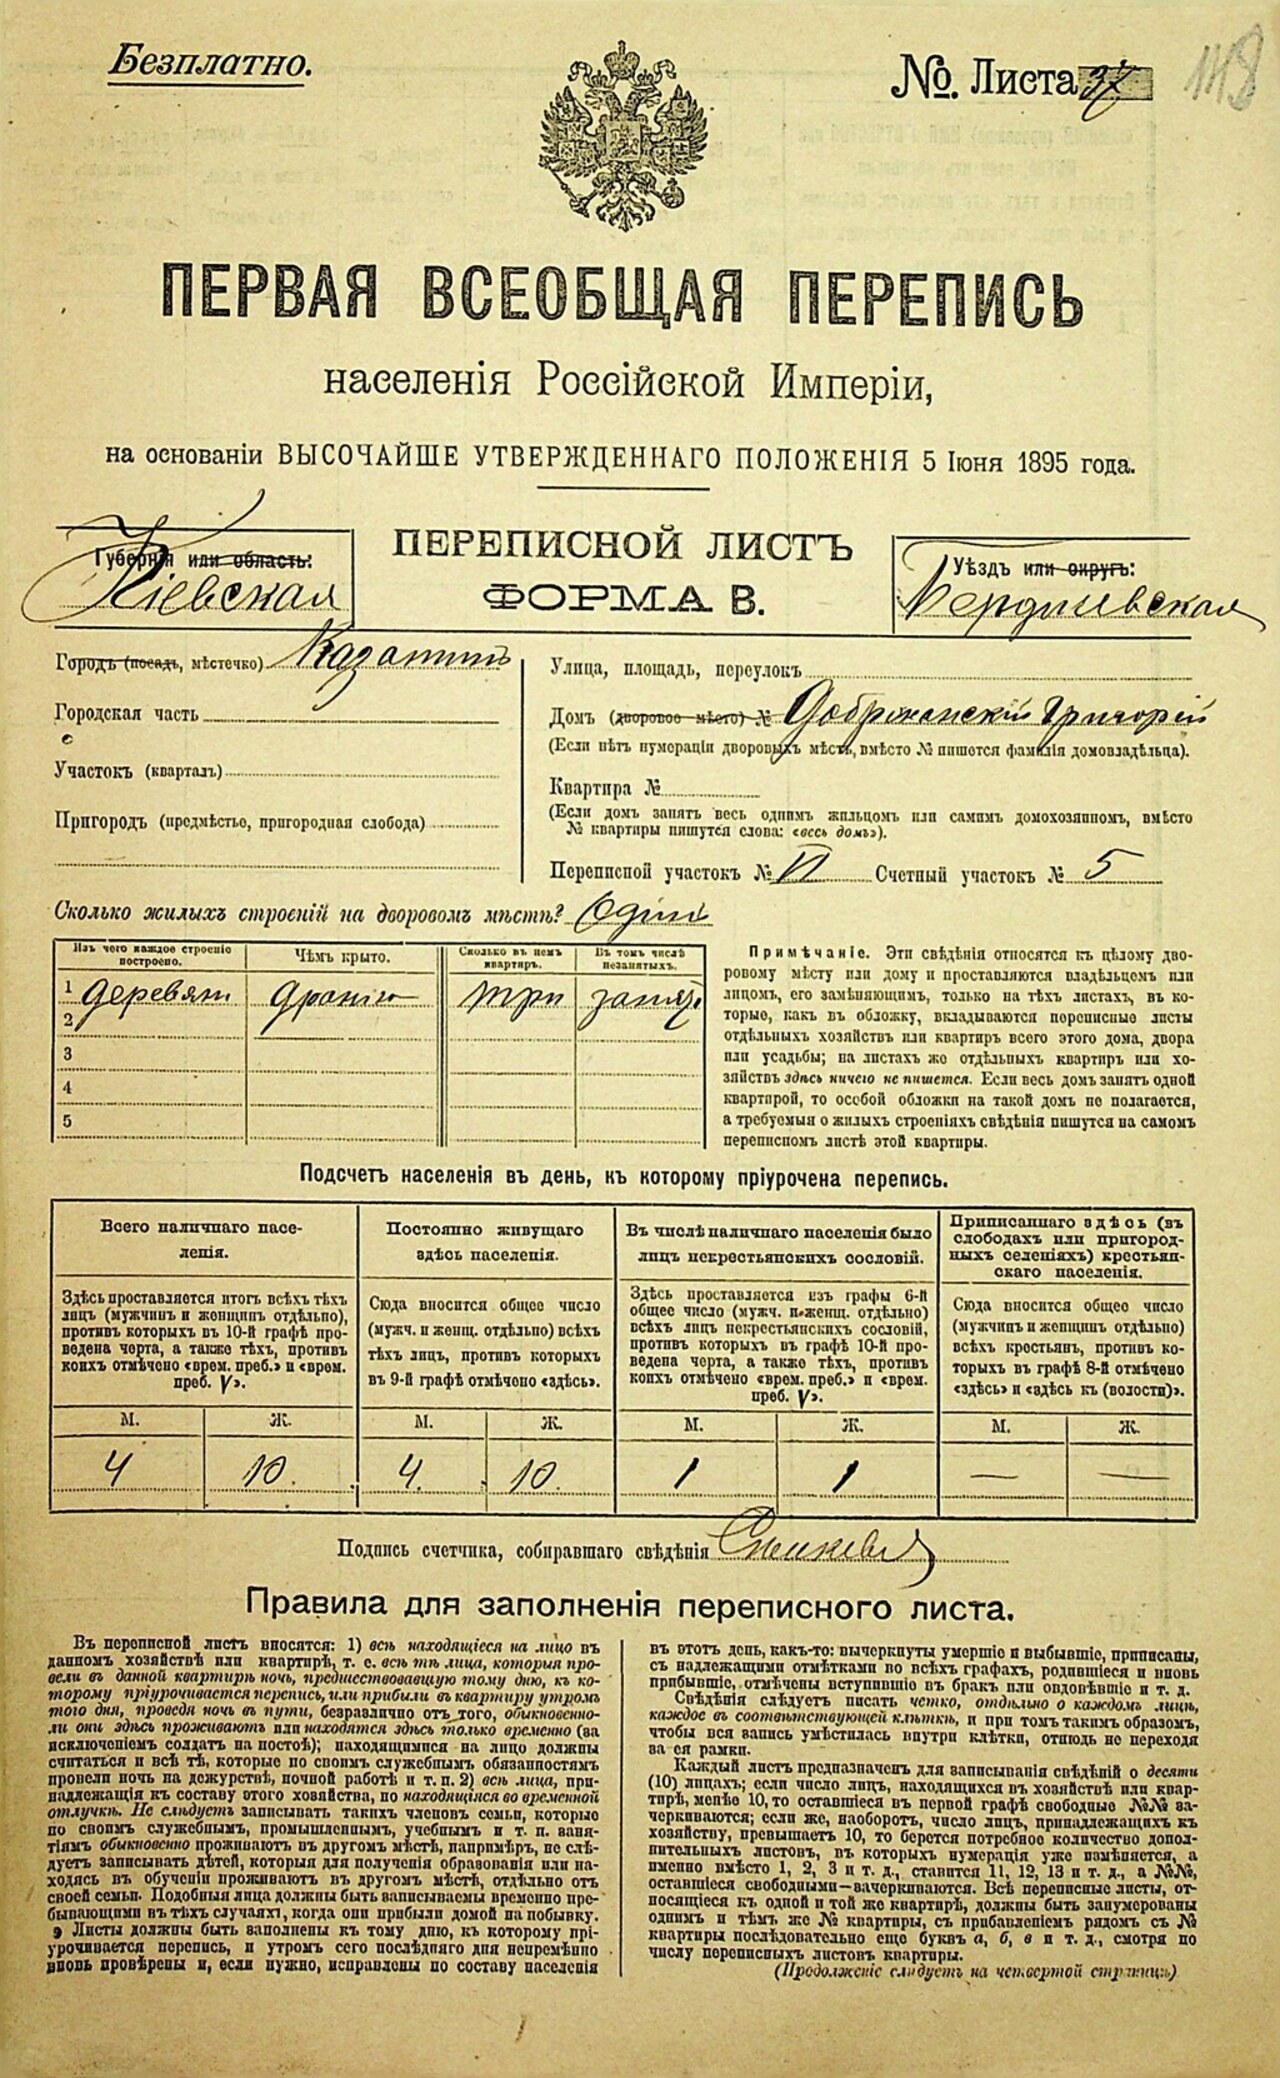 Безплатно.
№. Листа 37
118
ПЕРВАЯ ВСЕОБЩАЯ ПЕРЕПИСЬ
населенія Россійской Имперіи,
на основаніи ВЫСОЧАЙШЕ УТВЕРЖДЕННАГО ПОЛОЖЕНІЯ 5 Іюня 1895 года.
Губернія или область:
Кіевская
ПЕРЕПИСНОЙ ЛИСТЪ
ФОРМА В.
Уѣздъ или округъ:
Бердичевская
Городъ (посадъ, мѣстечко) Казатинъ
Городская часть
Участокъ (кварталъ)
Пригородъ (предмѣстье, пригородная слобода)
Улица, площадь, переулокъ
Домъ (дворовое мѣсто) № Добржанскій Григорій
(Если нѣтъ нумераціи дворовыхъ мѣстъ, вмѣсто № пишется фамилія домовладѣльца).
Квартира №
(Если домъ занятъ весь однимъ жильцомъ или самимъ домохозяиномъ, вмѣсто
№ квартиры пишутся слова: «весь домъ»).
Переписной участокъ № VI Счетный участокъ № 5
Сколько жилыхъ строеній на дворовомъ мѣстѣ? Одинъ
Изъ чего каждое строеніе
построено.
Чѣмъ крыто.
Сколько въ немъ
квартиръ.
Въ томъ числѣ
незанятыхъ.
1 деревян дранію три
2
3
4
5
Примѣчаніе. Эти свѣдѣнія относятся къ цѣлому дво-
ровому мѣсту или дому и проставляются владѣльцемъ или
лицомъ, его замѣняющимъ, только на тѣхъ листахъ, въ ко-
торые, какъ въ обложку, вкладываются переписные листы
отдѣльныхъ хозяйствъ или квартиръ всего этого дома, двора
или усадьбы; на листахъ же отдѣльныхъ квартиръ или хо-
зяйствъ здѣсь ничего не пишется. Если весь домъ занятъ одной
квартирой, то особой обложки на такой домъ не полагается,
а требуемыя о жилыхъ строеніяхъ свѣдѣнія пишутся на самомъ
переписномъ листѣ этой квартиры.
Подсчетъ населенія въ день, къ которому пріурочена перепись.
Всего наличнаго насе-
ленія.
Здѣсь проставляется итогъ всѣхъ тѣхъ
лицъ (мужчинъ и женщинъ отдѣльно),
противъ которыхъ въ 10-й графѣ про-
ведена черта, а также тѣхъ, противъ
коихъ отмѣчено «врем. преб.» и «врем.
преб. V».
Постоянно живущаго
здѣсь населенія.
Сюда вносится общее число
(мужч. и женщ. отдѣльно) всѣхъ
тѣхъ лицъ, противъ которыхъ
въ 9-й графѣ отмѣчено «здѣсь».
Въ числѣ наличнаго населенія было
лицъ некрестьянскихъ сословій.
Здѣсь проставляется изъ графы 6-й
общее число (мужч. и женщ. отдѣльно)
всѣхъ лицъ некрестьянскихъ сословій,
противъ которыхъ въ графѣ 10-й про-
ведена черта, а также тѣхъ, противъ
коихъ отмѣчено «врем. преб.» и «врем.
преб. V».
Приписаннаго здѣсь (въ
слободахъ или пригород-
ныхъ селеніяхъ) крестьян-
скаго населенія.
Сюда вносится общее число
(мужчинъ и женщинъ отдѣльно)
всѣхъ крестьянъ, противъ ко-
торыхъ въ графѣ 8-й отмѣчено
«здѣсь» и «здѣсь къ (волости)».
М. Ж. М. Ж. М. Ж. М. Ж.
4 10. 4. 10. 1 1 — —
Подпись счетчика, собиравшаго свѣдѣнія
Правила для заполненія переписного листа.
Въ переписной листъ вносятся: 1) всѣ находящіеся на лицо въ
данномъ хозяйствѣ или квартирѣ, т. е. всѣ тѣ лица, которыя про-
вели въ данной квартирѣ ночь, предшествовавшую тому дню, къ ко-
торому пріурочивается перепись, или прибыли въ квартиру утромъ
того дня, проведя ночь въ пути, безразлично отъ того, обыкновенно-
ли они здѣсь проживаютъ или находятся здѣсь только временно (за
исключеніемъ солдатъ на постоѣ); находящимися на лицо должны
считаться и всѣ тѣ, которые по своимъ служебнымъ обязанностямъ
провели ночь на дежурствѣ, ночной работѣ и т. п. 2) всѣ лица, при-
надлежащія къ составу этого хозяйства, но находящіяся во временной
отлучкѣ. Не слѣдуетъ записывать такихъ членовъ семьи, которые
по своимъ служебнымъ, промышленнымъ, учебнымъ и т. п. заня-
тіямъ обыкновенно проживаютъ въ другомъ мѣстѣ, напримѣръ, не слѣ-
дуетъ записывать дѣтей, которыя для полученія образованія или на-
ходясь въ обученіи проживаютъ въ другомъ мѣстѣ, отдѣльно отъ
своей семьи. Подобныя лица должны быть записываемы временно пре-
бывающими въ тѣхъ случаяхъ, когда они прибыли домой на побывку.
Листы должны быть заполнены къ тому дню, къ которому прі-
урочивается перепись, и утромъ сего послѣдняго дня непремѣнно
вновь провѣрены и, если нужно, исправлены по составу населенія
въ этотъ день, какъ-то: вычеркнуты умершіе и выбывшіе, приписаны,
съ надлежащими отмѣтками во всѣхъ графахъ, родившіеся и вновь
прибывшіе, отмѣчены вступившіе въ бракъ или овдовѣвшіе и т. д.
Свѣдѣнія слѣдуетъ писать четко, отдѣльно о каждомъ лицѣ,
каждое въ соотвѣтствующей клѣткѣ, и при томъ такимъ образомъ,
чтобы вся запись умѣстилась внутри клѣтки, отнюдь не переходя
за ея рамки.
Каждый листъ предназначенъ для записыванія свѣдѣній о десяти
(10) лицахъ; если число лицъ, находящихся въ хозяйствѣ или квар-
тирѣ, менѣе 10, то оставшіеся въ первой графѣ свободные №№ за-
черкиваются; если же, наоборотъ, число лицъ, принадлежащихъ къ
хозяйству, превышаетъ 10, то берется потребное количество допол-
нительныхъ листовъ, въ которыхъ нумерація уже измѣняется, а
именно вмѣсто 1, 2, 3 и т. д., ставится 11, 12, 13 и т. д., а №№,
оставшіеся свободными—зачеркиваются. Всѣ переписные листы, от-
носящіеся къ одной и той же квартирѣ, должны быть занумерованы
однимъ и тѣмъ же № квартиры, съ прибавленіемъ рядомъ съ №
квартиры послѣдовательно еще буквъ а, б, в и т. д., смотря по
числу переписныхъ листовъ квартиры.
(Продолженіе слѣдуетъ на четвертой страницѣ)